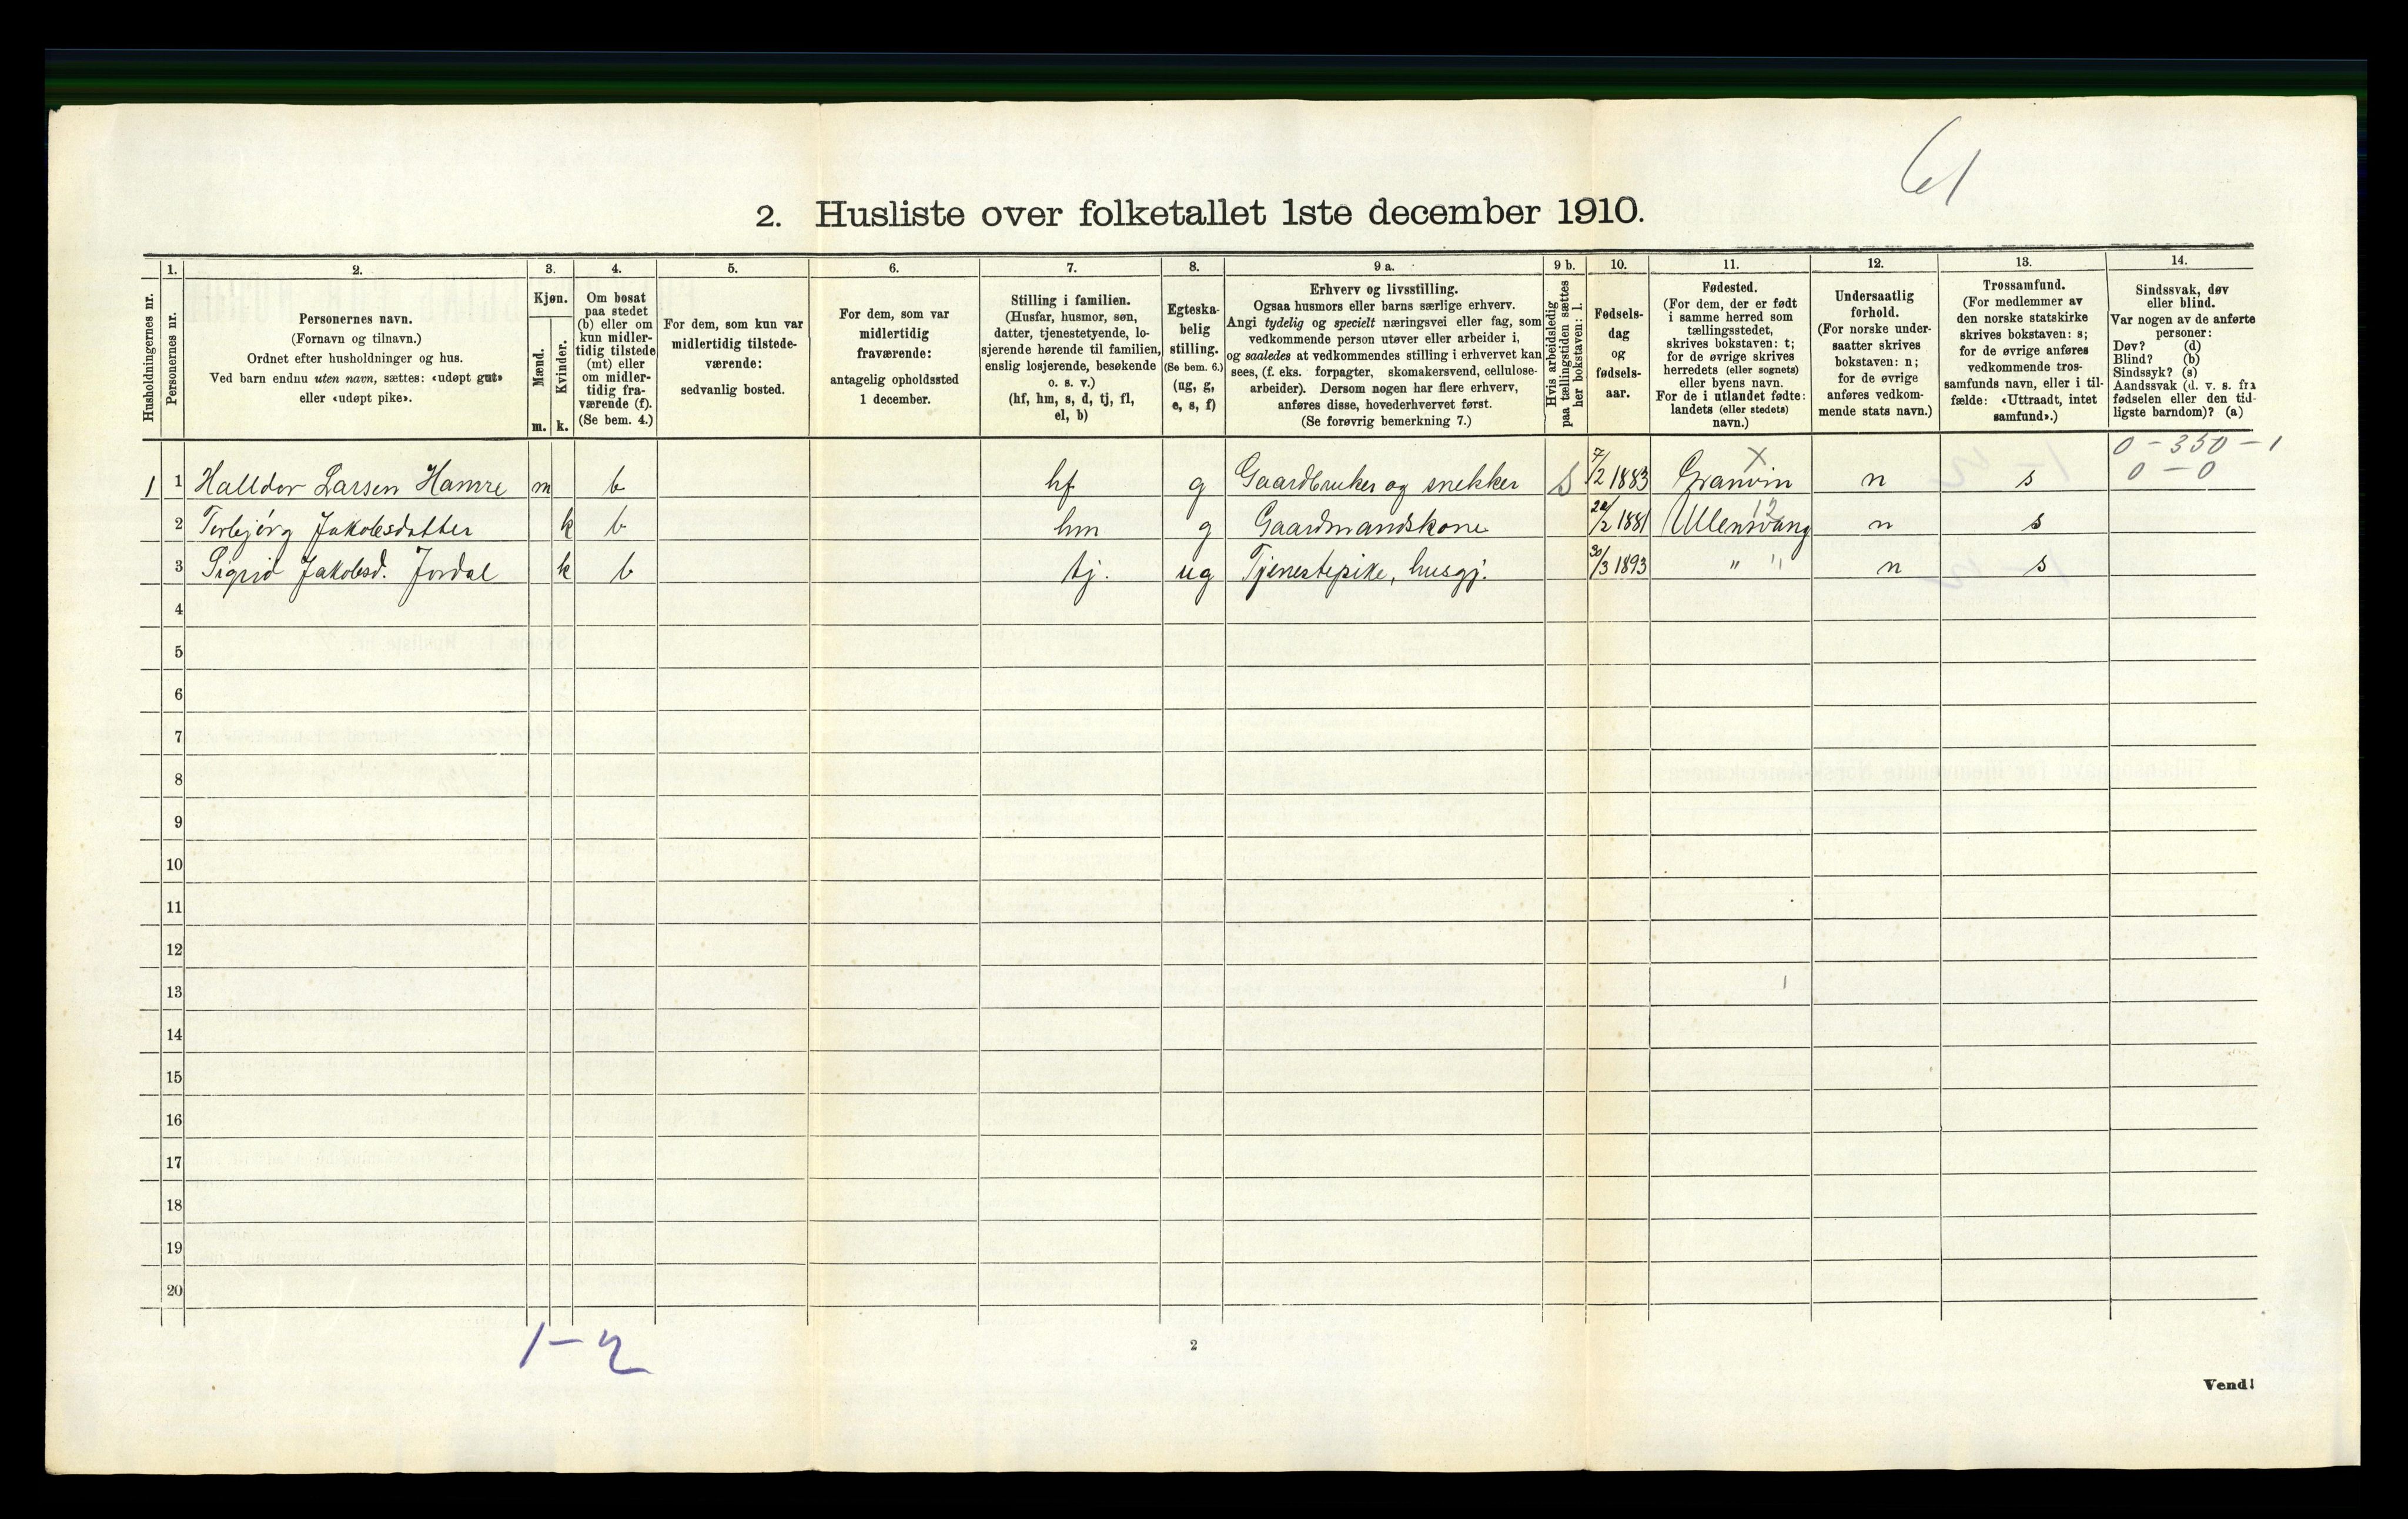 61
2. Husliste over folketallet 1ste december 1910.
Husholdningernes nr.
1.
Personernes nr.
2.
Personernes navn.
(Fornavn og tilnavn.)
Ordnet efter husholdninger og hus.
Ved barn endnu uten navn, sættes: «udøpt gut»
eller «udøpt pike».
3.
Kjøn.
Mænd.
Kvinder.
m. k.
4.
Om bosat
paa stedet
(b) eller om
kun midler-
tidig tilstede
(mt) eller
om midler-
tidig fra-
værende (f).
(Se bem. 4.)
5.
For dem, som kun var
midlertidig tilstede-
værende:
sedvanlig bosted.
6.
For dem, som var
midlertidig
fraværende:
antagelig opholdssted
1 december.
7.
Stilling i familien.
(Husfar, husmor, søn,
datter, tjenestetyende, lo-
sjerende hørende til familien,
enslig losjerende, besøkende
o. s. v.)
(hf, hm, s, d, tj, fl,
el, b)
8.
Egteska-
belig
stilling.
(Se bem. 6.)
(ug, g,
e, s, f)
9 a.
Erhverv og livsstilling.
Ogsaa husmors eller barns særlige erhverv.
Angi tydelig og specielt næringsvei eller fag, som
vedkommende person utøver eller arbeider i,
og saaledes at vedkommendes stilling i erhvervet kan
sees, (f. eks. forpagter, skomakersvend, cellulose-
arbeider). Dersom nogen har flere erhverv,
anføres disse, hovederhvervet først.
(Se forøvrig bemerkning 7.)
9 b.
Hvis arbeidsledig
paa tællingstiden sættes
her bokstaven: l.
10.
Fødsels-
dag
og
fødsels-
aar.
11.
Fødested.
(For dem, der er født
i samme herred som
tællingsstedet,
skrives bokstaven: t;
for de øvrige skrives
herredets (eller sognets)
eller byens navn.
For de i utlandet fødte:
landets (eller stedets)
navn.)
12.
Undersaatlig
forhold.
(For norske under-
saatter skrives
bokstaven: n;
for de øvrige
anføres vedkom-
mende stats navn.)
13.
Trossamfund.
(For medlemmer av
den norske statskirke
skrives bokstaven: s;
for de øvrige anføres
vedkommende tros-
samfunds navn, eller i til-
fælde: «Uttraadt, intet
samfund».)
14.
Sindssvak, døv
eller blind.
Var nogen av de anførte
personer:
Døv? (d)
Blind? (b)
Sindssyk? (s)
Aandssvak (d. v. s. fra
fødselen eller den tid-
ligste barndom)? (a)
0 - 350 - 1
1 1 Halldor Larsen Hamre m b hf g Gaardbruker og snekker S 7/2 1883 Granvin X n s 0 - 0
2 Torbjörg Jakobsdatter k b hm g Gaardmandskone /2 1881 Ullensvang 12 n s
3 Sigrid Jakobsd. Jordal k b tj. ug Tjenestepike, husgj. 30/3 1893 " " n s
4
5
6
7
8
9
10
11
12
13
14
15
16
17
18
19
20
1-2
2
Vend!